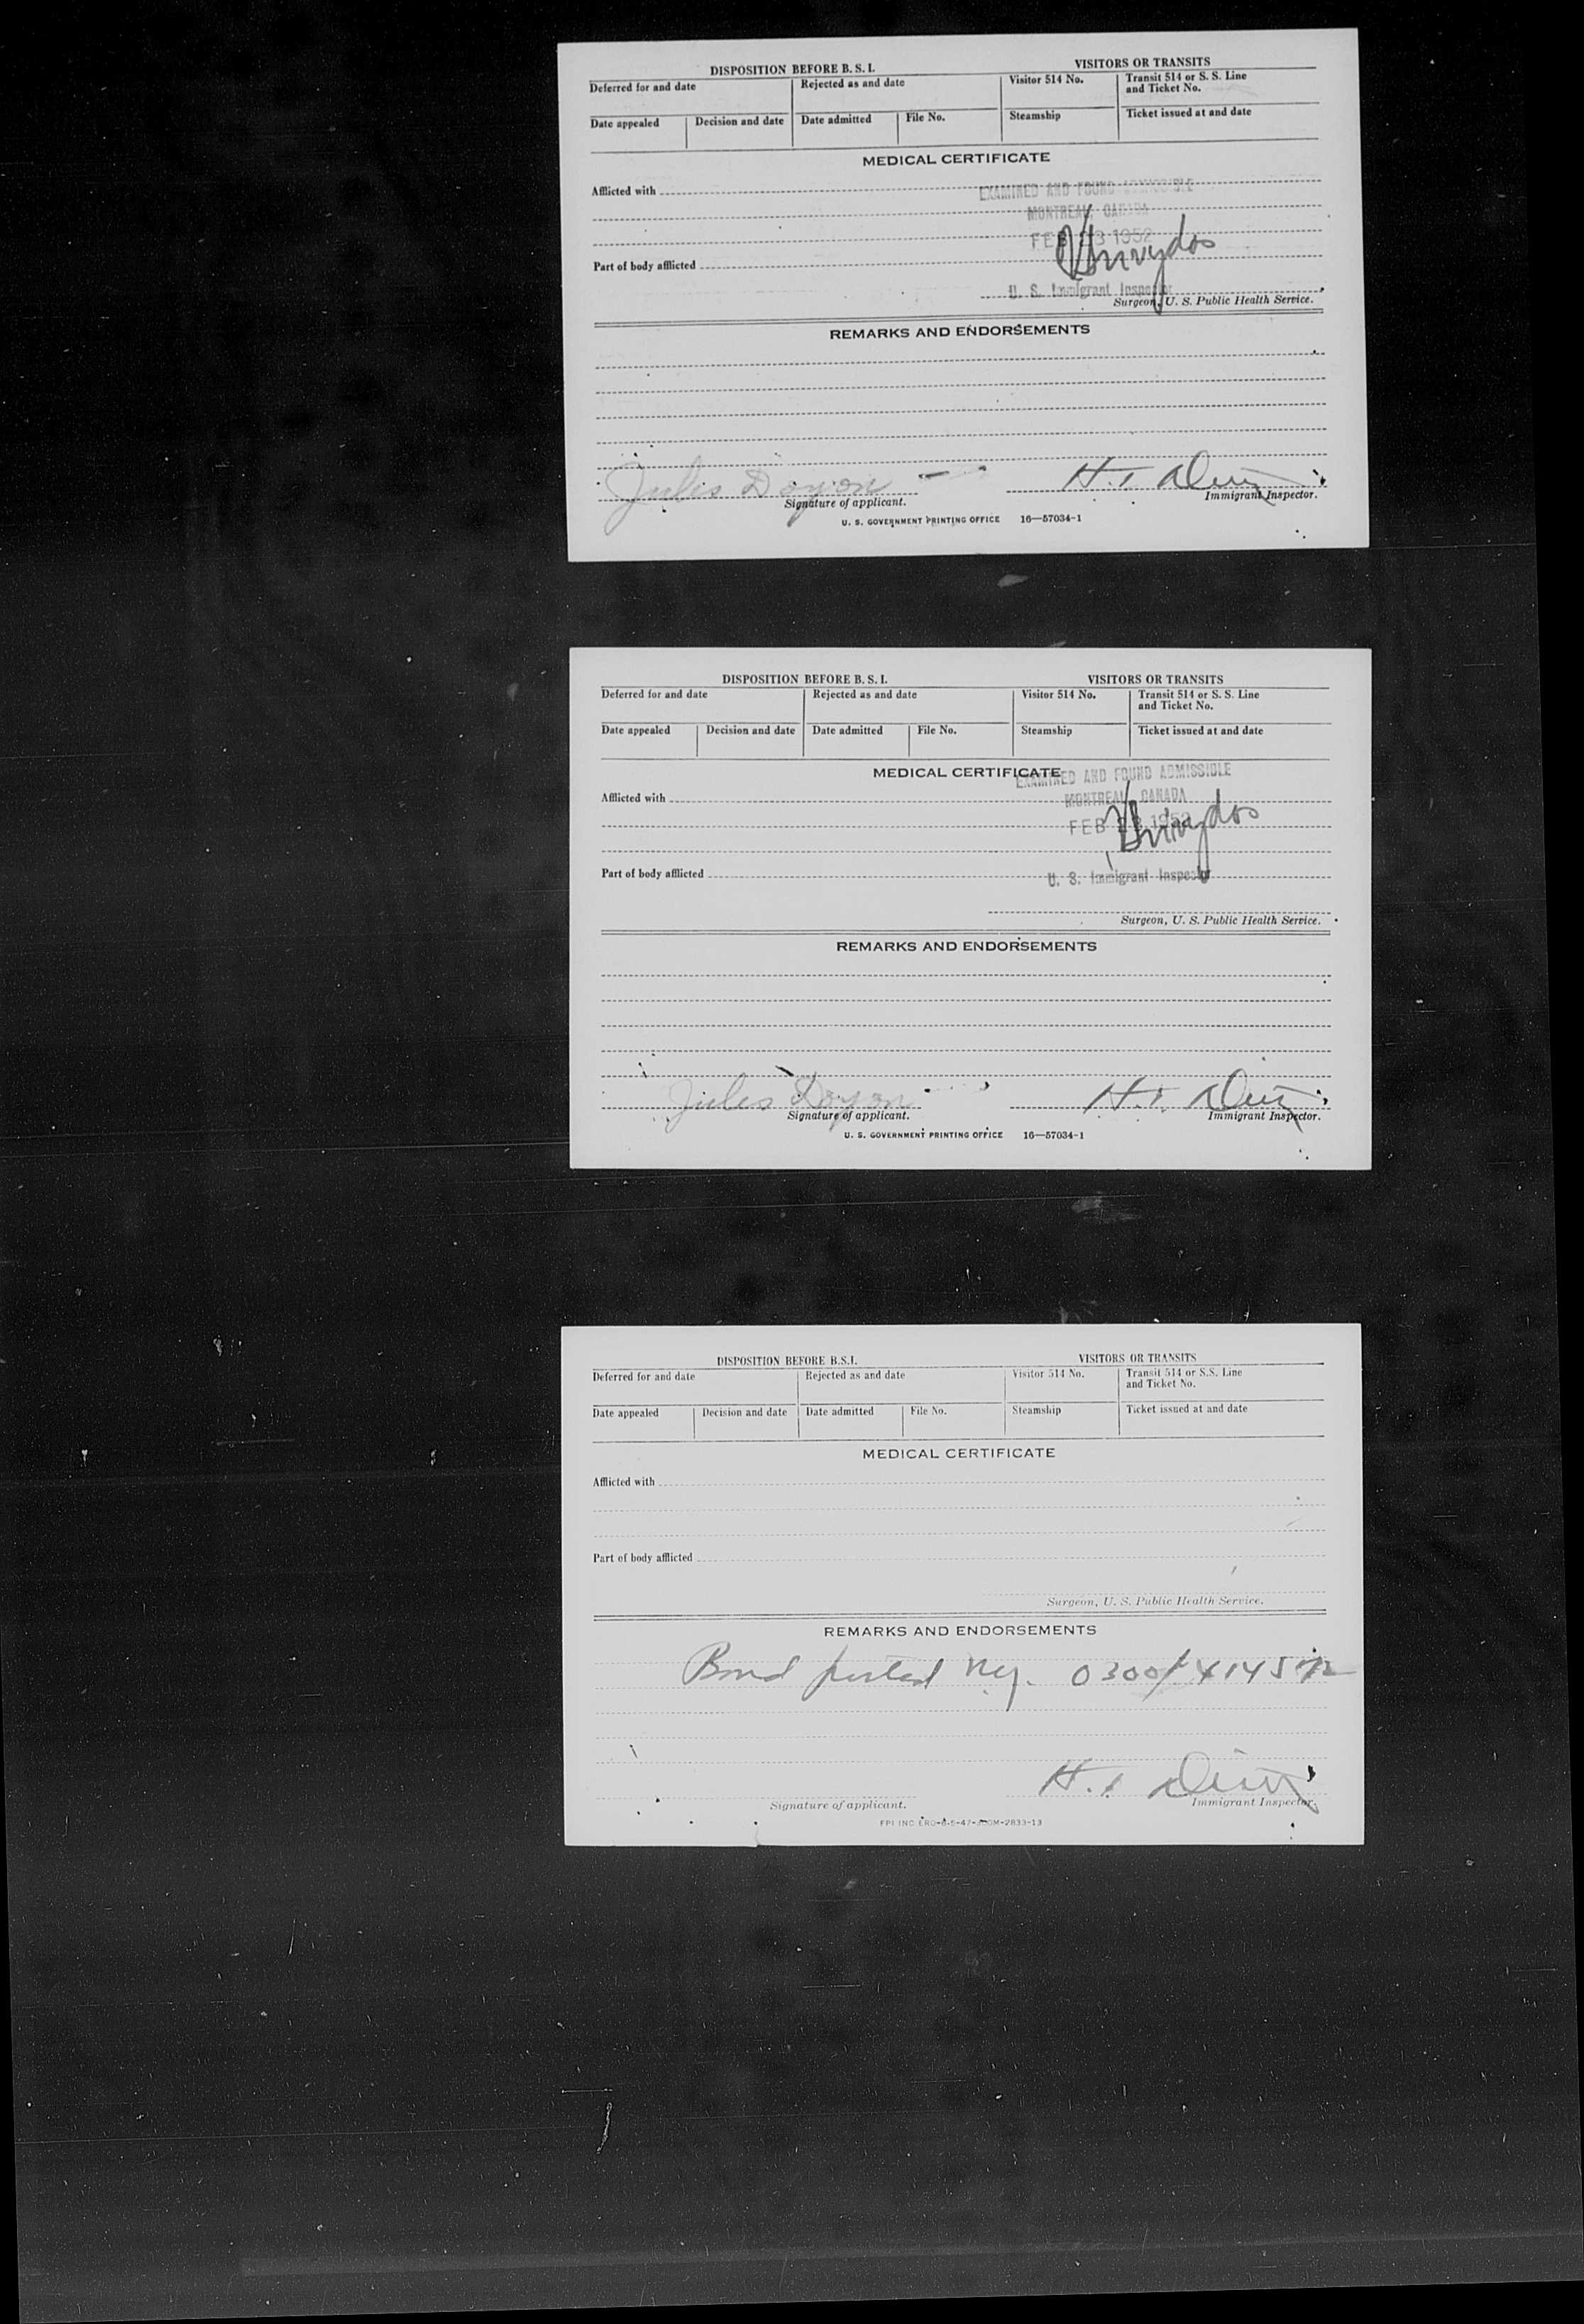 DISPOSITION BEFORE B. S. I.
VISITORS OR TRANSITS
Deferred for and date
Rejected as and date
Visitor 514 No.
Transit 514 or S. S. Line
and Ticket No.
Date appealed
Decision and date
Date admitted
File No.
Steamship
Ticket issued at and date
MEDICAL CERTIFICATE
Afflicted with
EXAMINED AND FOUND ADMISSIBLE
MONTREAL, CANADA
FEB 1952
Part of body afflicted
U. S. Immigrant Inspector
Surgeon, U. S. Public Health Service.
REMARKS AND ENDORSEMENTS
Jules Doyon
H.
Signature of applicant.
Immigrant Inspector.
U. S. GOVERNMENT PRINTING OFFICE 16—57034-1
DISPOSITION BEFORE B. S. I.
VISITORS OR TRANSITS
Deferred for and date
Rejected as and date
Visitor 514 No.
Transit 514 or S. S. Line
and Ticket No.
Date appealed
Decision and date
Date admitted
File No.
Steamship
Ticket issued at and date
MEDICAL CERTIFICATE
EXAMINED AND FOUND ADMISSIBLE
Afflicted with
MONTREAL, CANADA
FEB 1952
Part of body afflicted
U. S. Immigrant Inspector
Surgeon, U. S. Public Health Service.
REMARKS AND ENDORSEMENTS
Jules Doyon
H.
Signature of applicant.
Immigrant Inspector.
U. S. GOVERNMENT PRINTING OFFICE 16—57034-1
DISPOSITION BEFORE B.S.I.
VISITORS OR TRANSITS
Deferred for and date
Rejected as and date
Visitor 514 No.
Transit 514 or S.S. Line
and Ticket No.
Date appealed
Decision and date
Date admitted
File No.
Steamship
Ticket issued at and date
MEDICAL CERTIFICATE
Afflicted with
Part of body afflicted
Surgeon, U. S. Public Health Service.
REMARKS AND ENDORSEMENTS
Bond posted
H.
Signature of applicant.
Immigrant Inspector.
FPI INC